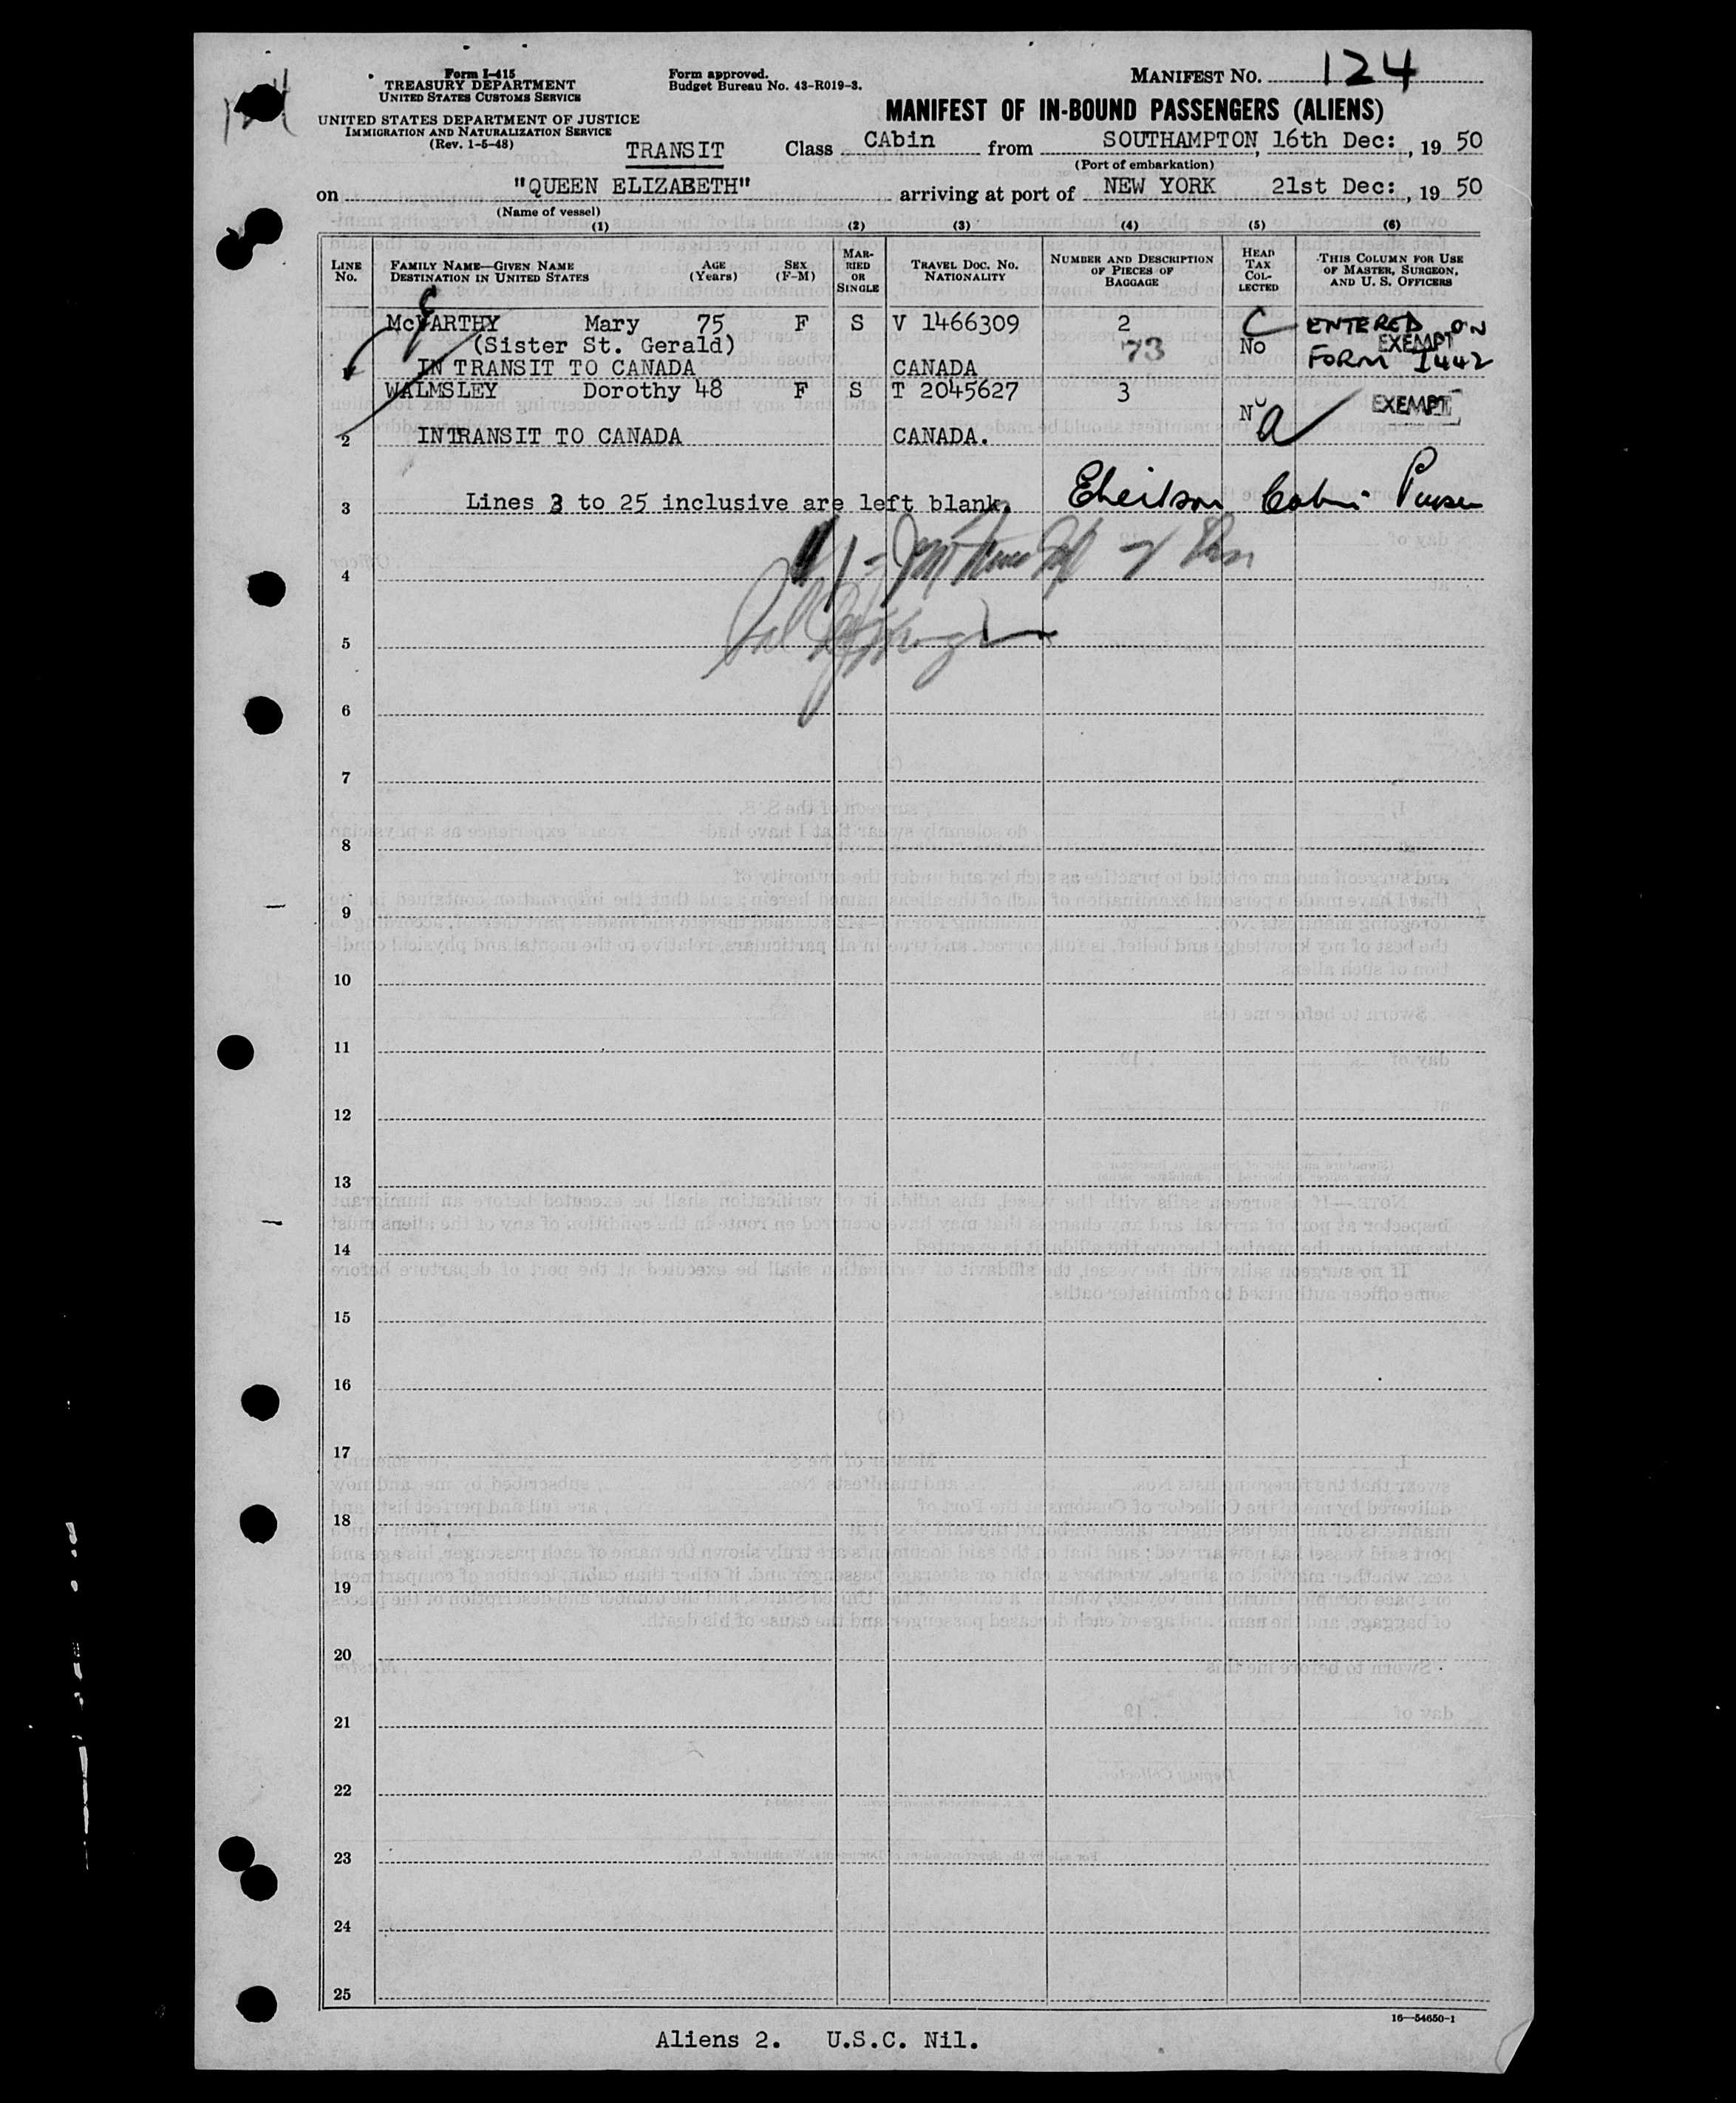 124
Form I-415
TREASURY DEPARTMENT
UNITED STATES CUSTOMS SERVICE
UNITED STATES DEPARTMENT OF JUSTICE
IMMIGRATION AND NATURALIZATION SERVICE
(Rev. 1-5-48)
Form approved.
Budget Bureau No. 43-R019-3.
MANIFEST NO. 124
MANIFEST OF IN-BOUND PASSENGERS (ALIENS)
TRANSIT Class CAbin from SOUTHAMPTON, 16th Dec:, 19 50
(Port of embarkation)
on "QUEEN ELIZABETH" arriving at port of NEW YORK 21st Dec:, 19 50
(Name of vessel)
(1) (2) (3) (4) (5) (6)
LINE No. FAMILY NAME—GIVEN NAME DESTINATION IN UNITED STATES AGE (Years) SEX (F-M) MARRIED OR SINGLE TRAVEL DOC. No. NATIONALITY NUMBER AND DESCRIPTION OF PIECES OF BAGGAGE HEAD TAX COLLECTED THIS COLUMN FOR USE OF MASTER, SURGEON, AND U. S. OFFICERS
McCARTHY Mary 75 F S V 1466309 2 C ENTERED ON
(Sister St. Gerald) 73 No EXEMPT
1 IN TRANSIT TO CANADA CANADA FORM I442
WALMSLEY Dorothy 48 F S T 2045627 3 No EXEMPT
2 INTRANSIT TO CANADA CANADA. a
3 Lines 3 to 25 inclusive are left blank. Cabin Purser
4
5
6
7
8
9
10
11
12
13
14
15
16
17
18
19
20
21
22
23
24
25
16—54650-1
Aliens 2. U.S.C. Nil.